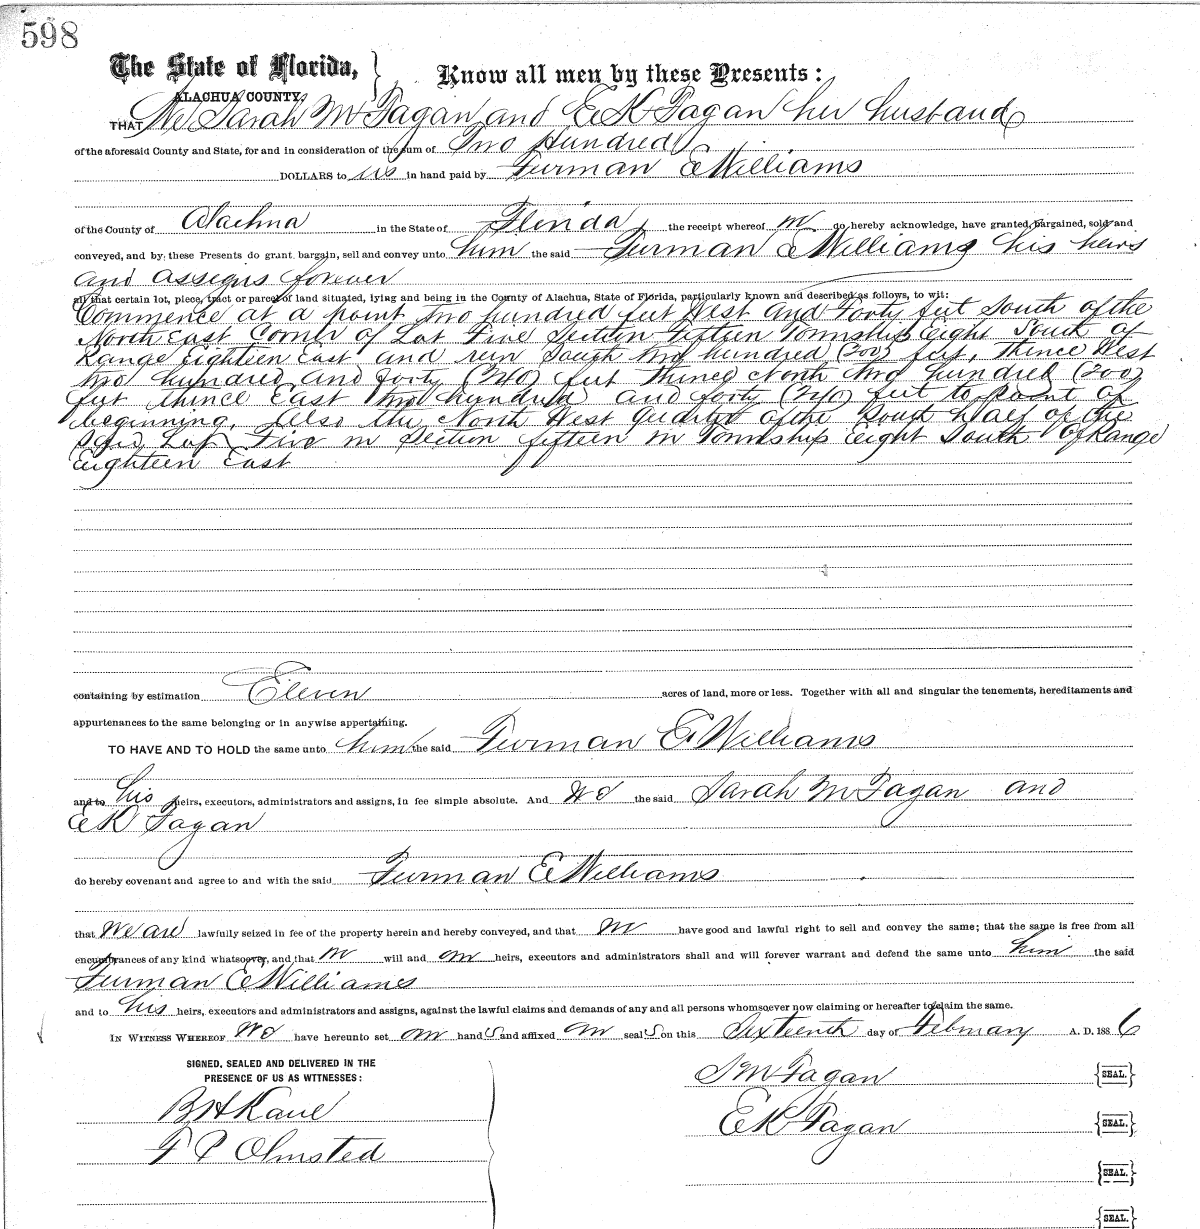 598
The State of Florida, } Know all men by these Presents:
ALACHUA COUNTY.
THAT We Sarah M Fagan and E K Fagan her husband
of the aforesaid County and State, for and in consideration of the sum of Two Hundred
DOLLARS to us in hand paid by Furman E Williams
of the County of Alachua in the State of Florida, the receipt whereof we do hereby acknowledge, have granted, bargained, sold and
conveyed, and by these Presents do grant, bargain, sell and convey unto him the said Furman E Williams his heirs
and assigns forever
all that certain lot, piece, tract or parcel of land situated, lying and being in the County of Alachua, State of Florida, particularly known and described as follows, to wit:
Commence at a point two hundred feet West and Forty feet South of the
North East Corner of Lot Five Section Fifteen Township Eight South of
Range Eighteen East and run South two hundred (200) feet, thence West
two hundred and forty (240) feet thence North two hundred (200)
feet thence East two hundred and forty (240) feet to point of
beginning. Also the North West Quarter of the South half of the
said Lot Five in Section fifteen in Township Eight South of Range
Eighteen East
containing by estimation Eleven acres of land, more or less. Together with all and singular the tenements, hereditaments and
appurtenances to the same belonging or in anywise appertaining.
TO HAVE AND TO HOLD the same unto him the said Furman E Williams
and to his heirs, executors, administrators and assigns, in fee simple absolute. And we the said Sarah M Fagan and
E K Fagan
do hereby covenant and agree to and with the said Furman E Williams
that we are lawfully seized in fee of the property herein and hereby conveyed, and that we have good and lawful right to sell and convey the same; that the same is free from all
encumbrances of any kind whatsoever, and that we will and our heirs, executors and administrators shall and will forever warrant and defend the same unto him the said
Furman E Williams
and to his heirs, executors and administrators and assigns, against the lawful claims and demands of any and all persons whomsoever now claiming or hereafter to claim the same.
IN WITNESS WHEREOF we have hereunto set our hands and affixed our seals on this Sixteenth day of February A. D. 1886
SIGNED, SEALED AND DELIVERED IN THE
PRESENCE OF US AS WITNESSES:
S M Fagan {SEAL.}
B H Kane
E K Fagan {SEAL.}
F P Olmsted
{SEAL.}
{SEAL.}